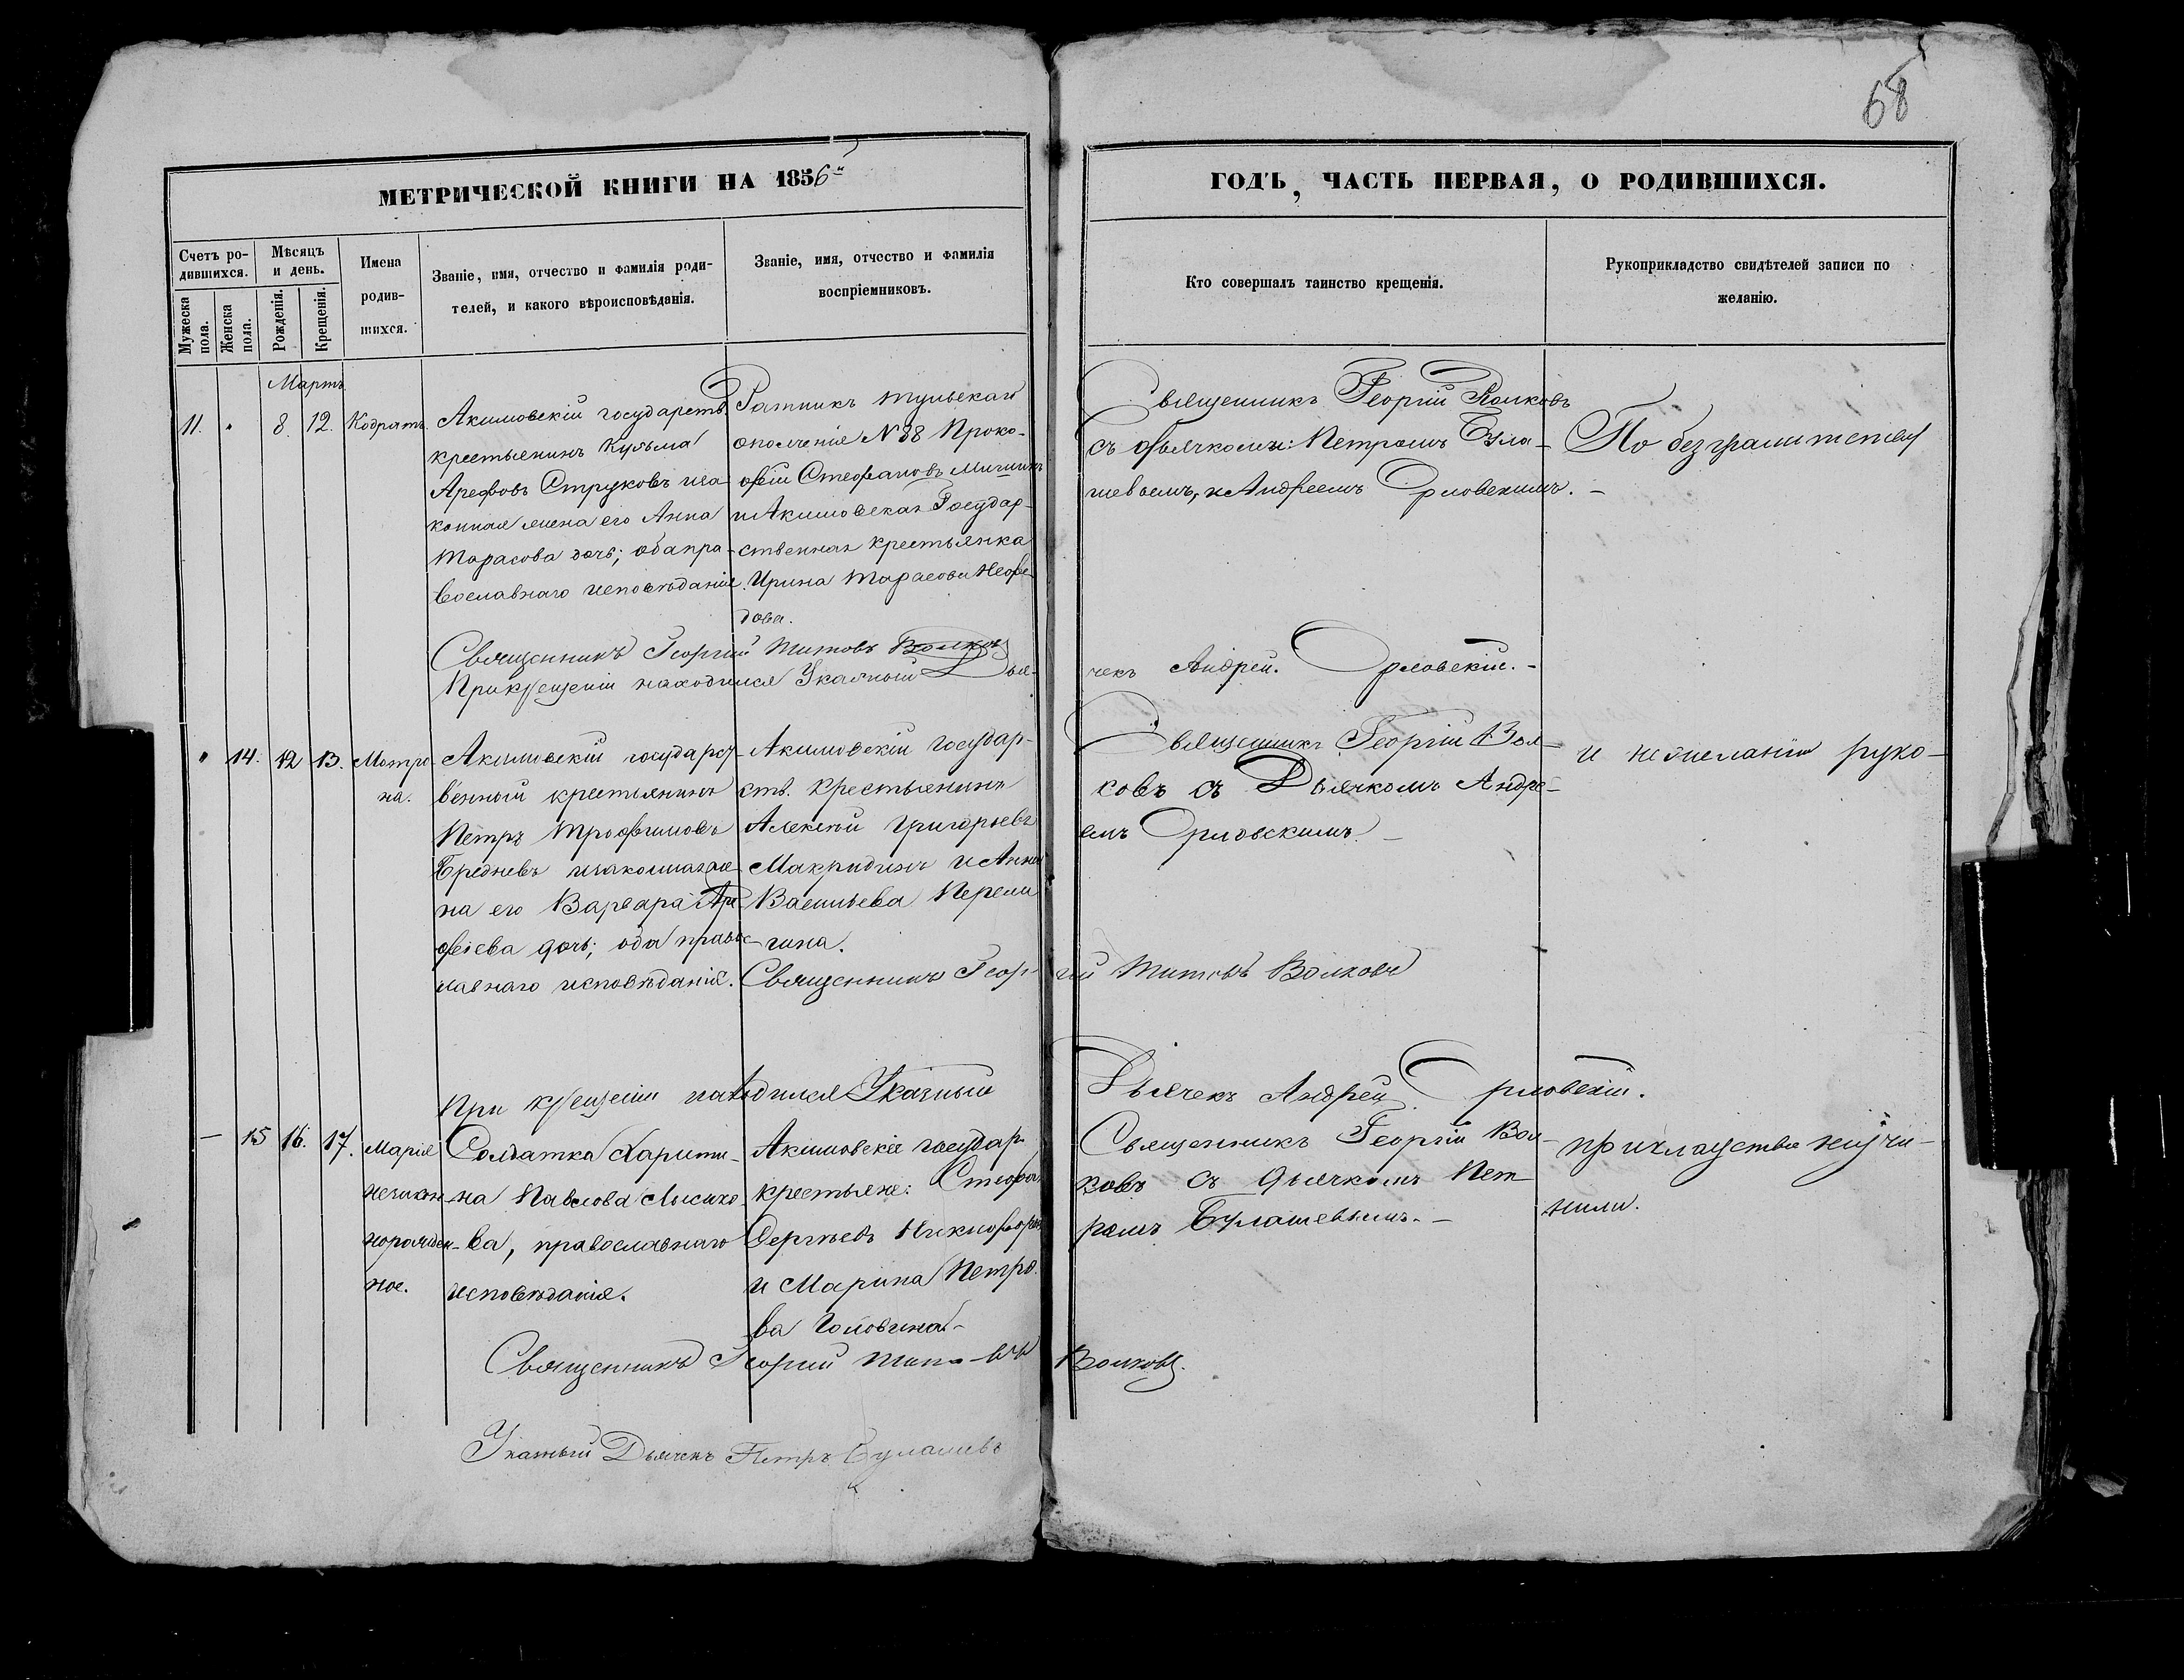 68
МЕТРИЧЕСКОЙ КНИГИ НА 1856й
ГОДЪ, ЧАСТЬ ПЕРВАЯ, О РОДИВШИХСЯ.
Счетъ ро-
дившихся.
Мужеска
пола.
Женска
пола.
Мѣсяцъ
и день.
Рожденія.
Крещенія.
Имена
родив-
шихся.
Званіе, имя, отчество и фамилія роди-
телей, и какого вѣроисповѣданія.
Званіе, имя, отчество и фамилія
воспріемниковъ.
Кто совершалъ таинство крещенія.
Рукоприкладство свидѣтелей записи по
желанію.
Мартъ
11. 8. 12. Кодратъ.
Акимовскій государств
крестьянинъ Кузьма
Арефовъ Струковъ иза-
конная жена его Анна
Тарасова дочь; оба пра-
вославнаго исповѣданія.
Ратникъ Тульскаго
ополченія N 38 Проко-
фій Стефановъ
и Акимовская Государ-
ственная крестьянка
Ирина Тарасова Нефе-
дова.
Священникъ Георгій Волковъ
съ дьячкомъ: Петромъ Була-
шевымъ, и Андреемъ Орловскимъ. -
По безграмотству
Священникъ Георгій Титовъ Волковъ
При крещеніи находился Указный Дья-
чекъ Андрей Орловскій. -
14. 12 13. Матро-
на.
Акимовскій государст-
венный крестьянинъ
Петръ Трофимовъ
Бредневъ изаконнаяже
на его Варвара Аре
фіева дочь; оба правос-
лавнаго исповѣданія.
Акимовскій государ-
ств. крестьянинъ
Алексѣй Григорьевъ
Макридинъ и Анна
Васильева Перели
гина.
Священникъ Георгій Вол-
ковъ съ Дьячкомъ Андре-
емъ Орловскимъ -
и нежеланію руко-
Священникъ Георгій Титовъ Волковъ
При крещеніи находился Указный Дьячекъ Андрей Орловскій.
15 16. 17. Марія
незакон-
норожден-
ное.
Солдатка Харити-
на Павлова Лысико-
ва, православнаго
исповѣданія.
Акимовскіе государ
крестьяне: Стефанъ
Сергѣевъ Никифоровъ
и Марина Петро-
ва Головина. -
Священникъ Георгій Вол-
ковъ съ дьячкомъ Пет-
ромъ Булашевымъ. -
прикладства неучи-
нили.
Священникъ Георгій Титовъ Волковъ.
Указный Дьячекъ Петръ Булашевъ